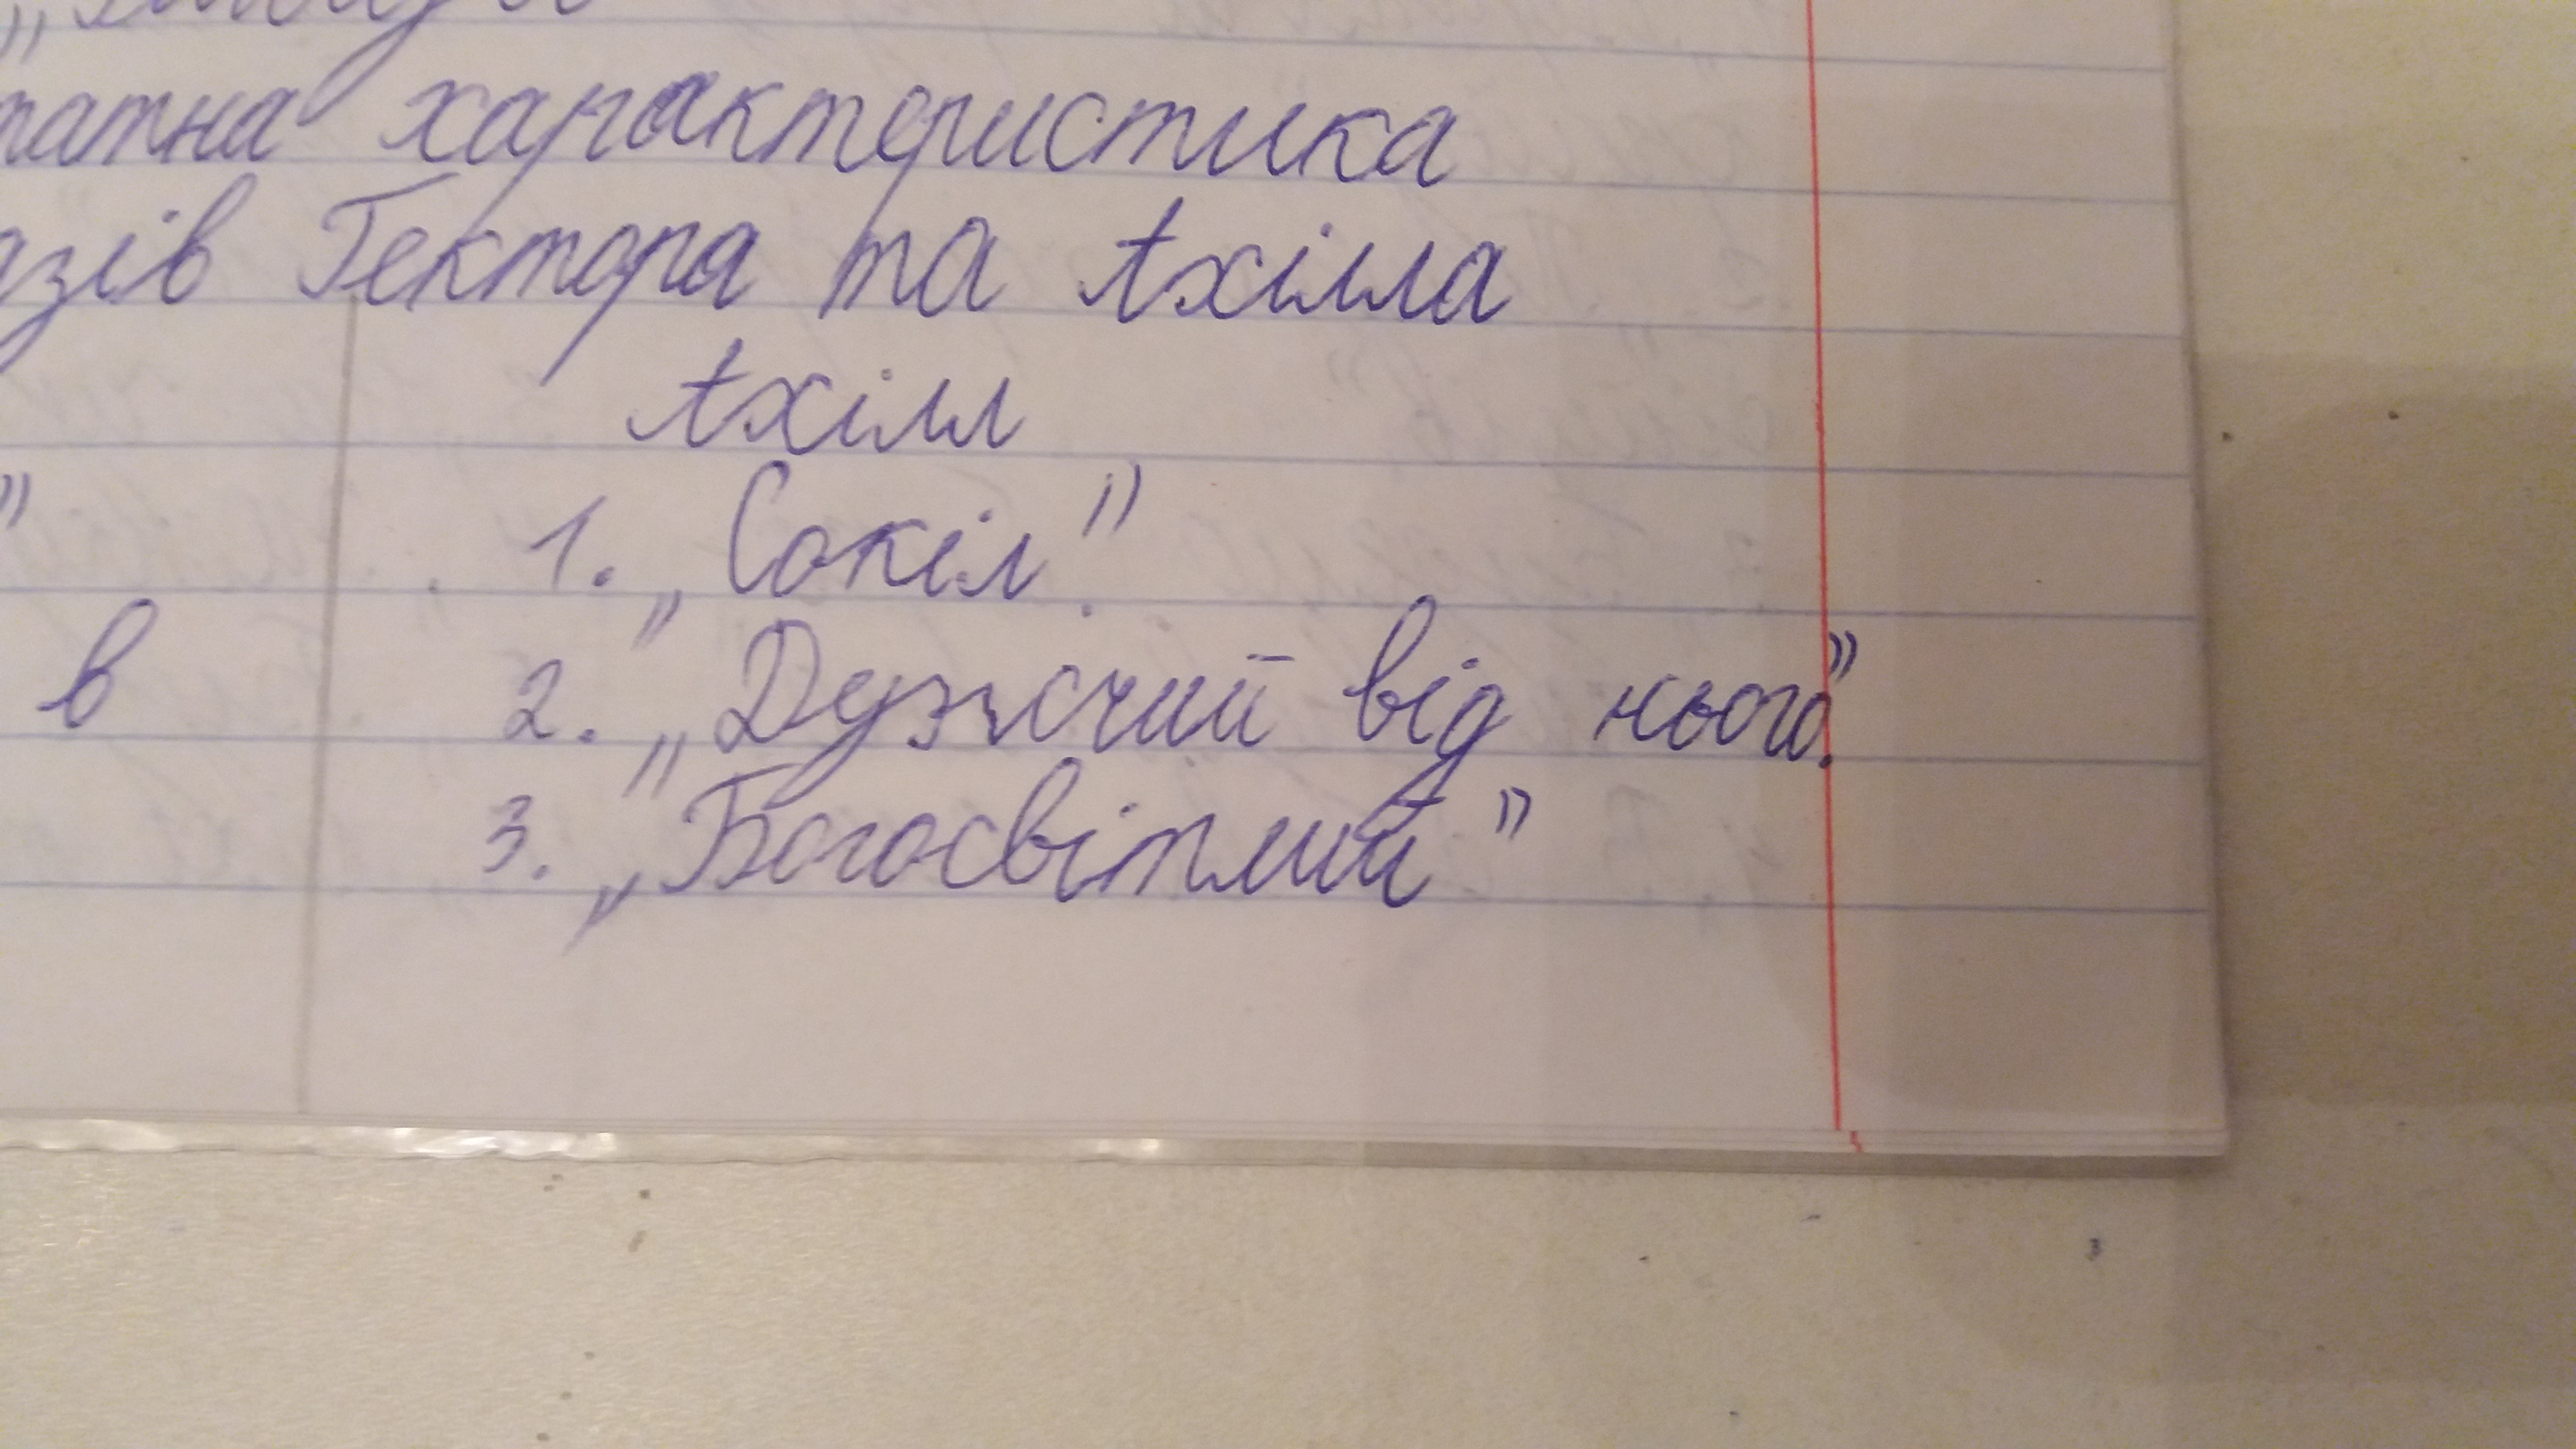 характеристика
Гектора та Ахілла
Ахілл
" 1. „Сокіл".
в 2. „Дужчий від нього".
3. „Богосвітлий"